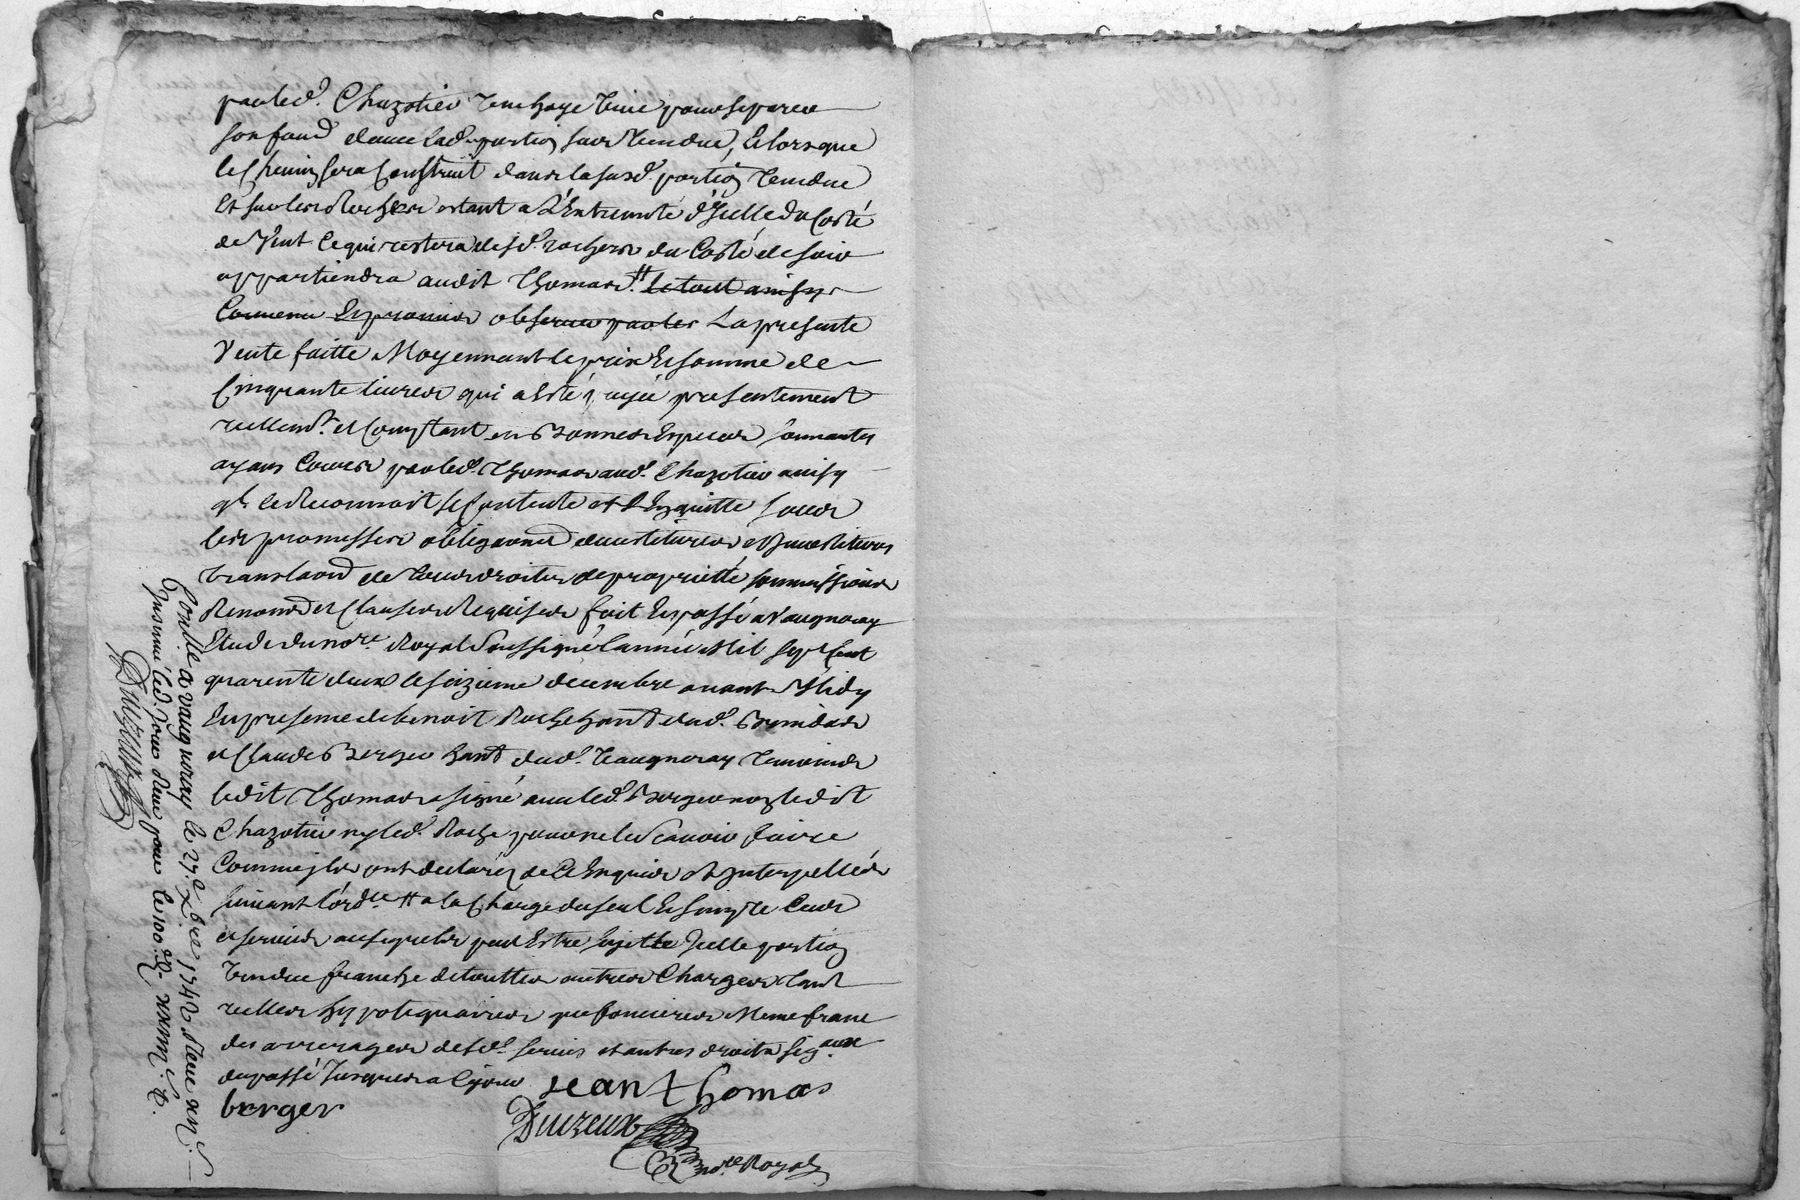 par led. Chazotier une haye vive pour separer
son fond d'avec lad. portion sus vendue, Et lorsque
le Chemin sera Construit dans la susd. portion vendue
Et sur les Rochers estant a L'Extremité d'Icelle du Costé
de Vent ce qui restera desd. rochers du Costé de soir
appartiendra audit Thomas. # le tout ainsy
Convenu Et promis observer par les La presente
Vente faitte Moyennant le prix Et somme de
Cinquante livres qui a Esté payée presentement
reellemt. et Comptant en Bonnes Especes sonnantes
ayans Cours par led. Thomas aud. Chazotier ainsy
qu'il le Reconnoit se Contente et L'En quitte sous
les promesses obligaons d'evestitures et Investitures
translaon de tous droits de proprietté soumissions
Renons et Clauses Requises fait Et passé a Vaugneray
Etude du nore. Royal soussigné l'année Mil sept Cent
quarente deux le seizieme decembre avant Midy
En presence de benoit Roche hant dud. Brindas
et Claude Berger hant dud. Vaugneray temoins
ledit Thomas a signé avec led. Berger non ledit
Chazotier ny led. Roche pour ne le Scavoir faire
Comme ils ont declaréz de ce Enquis et Interpellés
suivant l'ordce # a la Charge du seul Et simple Cens
et servis auxquels peut Estre sujette Icelle portion
vendue franche de touttes autres Charges tant
reelles hypotequaires que foncieres Meme franc
des arrerages desd. servis et autres droits seigaux
du passé Jusques a ce jour Jean thomas
berger
Duzeux
nore Royal
Conllé a vaugneray le 27e. Xbre 1742
Insinué led. jour
Duzeux